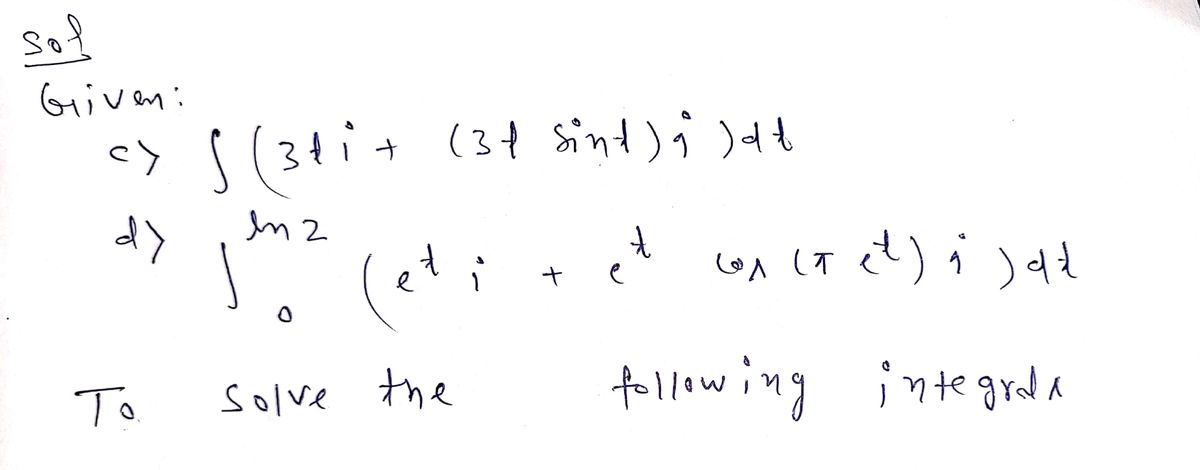 Sol
Given:
c> ∫ (3t i + (3t sint) j ) dt
d> ∫₀^{ln 2} (e^t i + e^t cos (π e^t) j ) dt
To solve the following integrals